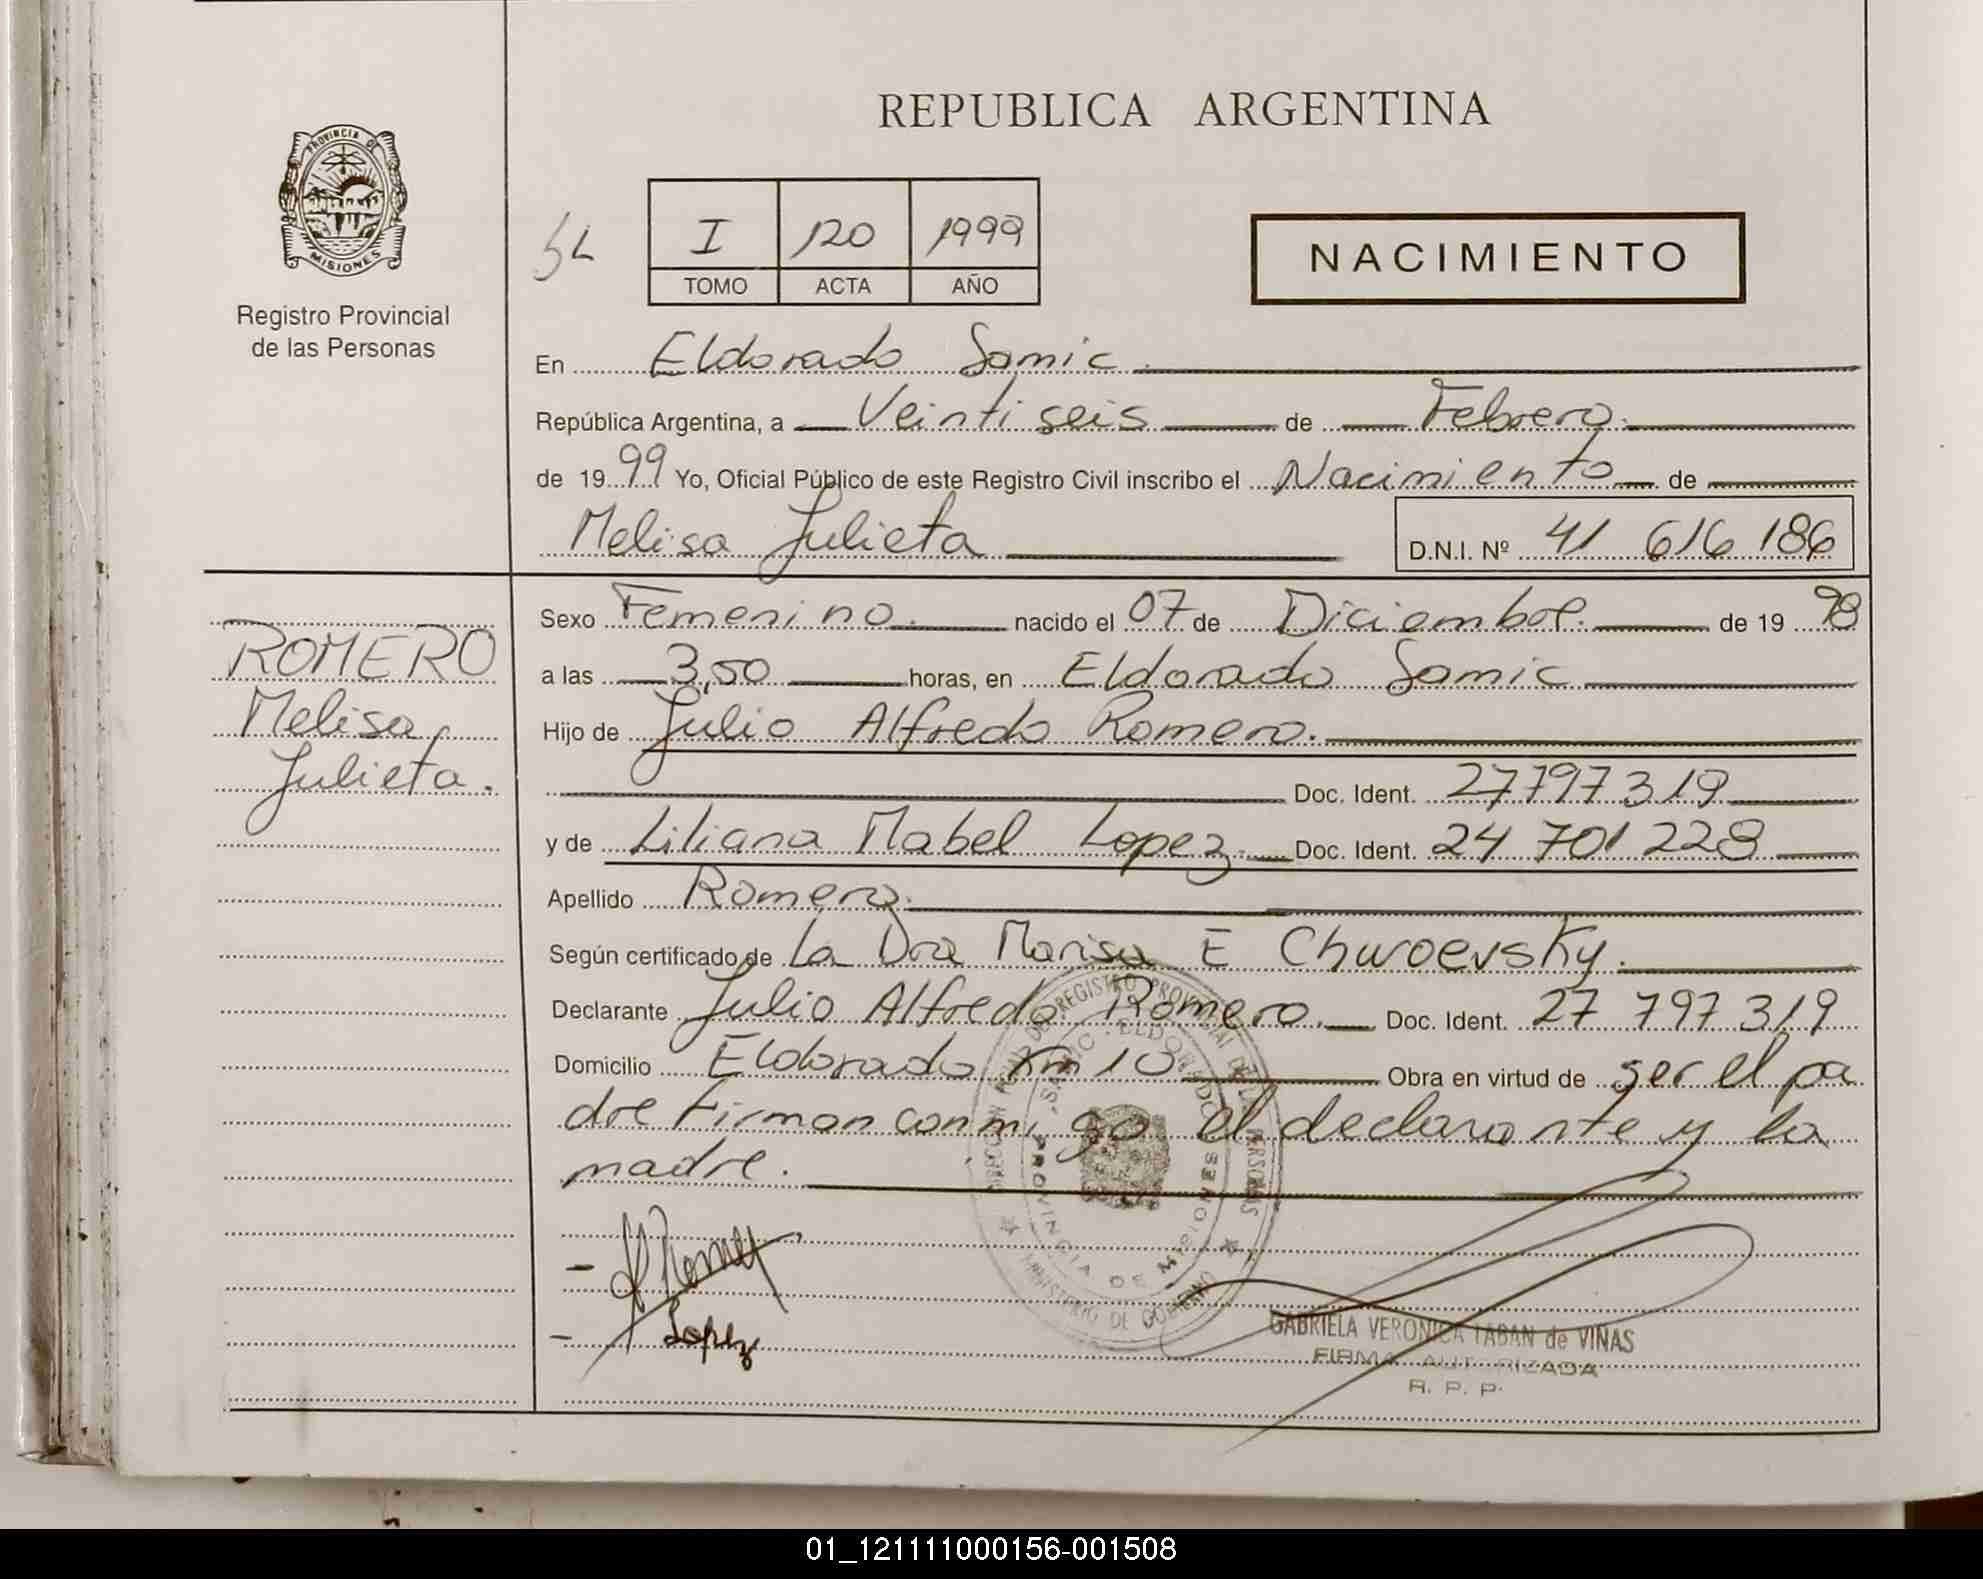 REPUBLICA ARGENTINA
PROVINCIA DE
MISIONES
Registro Provincial
de las Personas
I 120 1999
TOMO ACTA AÑO
NACIMIENTO
En Eldorado Samic.
República Argentina, a Veintiseis de Febrero.
de 1999 Yo, Oficial Público de este Registro Civil inscribo el Nacimiento de
Melisa Julieta D.N.I. Nº 41 616 186
ROMERO
Melisa
Julieta.
Sexo Femenino. nacido el 07 de Diciembre. de 19 98
a las 3,50 horas, en Eldorado Samic
Hijo de Julio Alfredo Romero.
Doc. Ident. 27797319
y de Liliana Mabel Lopez Doc. Ident. 24 701 228
Apellido Romero.
Según certificado de La Dra Marisa E Chwoevsky.
Declarante Julio Alfredo Romero. Doc. Ident. 27 797 319
Domicilio Eldorado Km 10 Obra en virtud de ser el pa
dre Firman conmigo el declarante y la
madre.
REGISTRO PROVINCIAL DE LAS PERSONAS
SAMIC - ELDORADO
PROVINCIA DE MISIONES
MINISTERIO DE GOBIERNO
Romero
Lopez
GABRIELA VERONICA TABAN de VIÑAS
FIRMA AUTORIZADA
R. P. P.
01_121111000156-001508